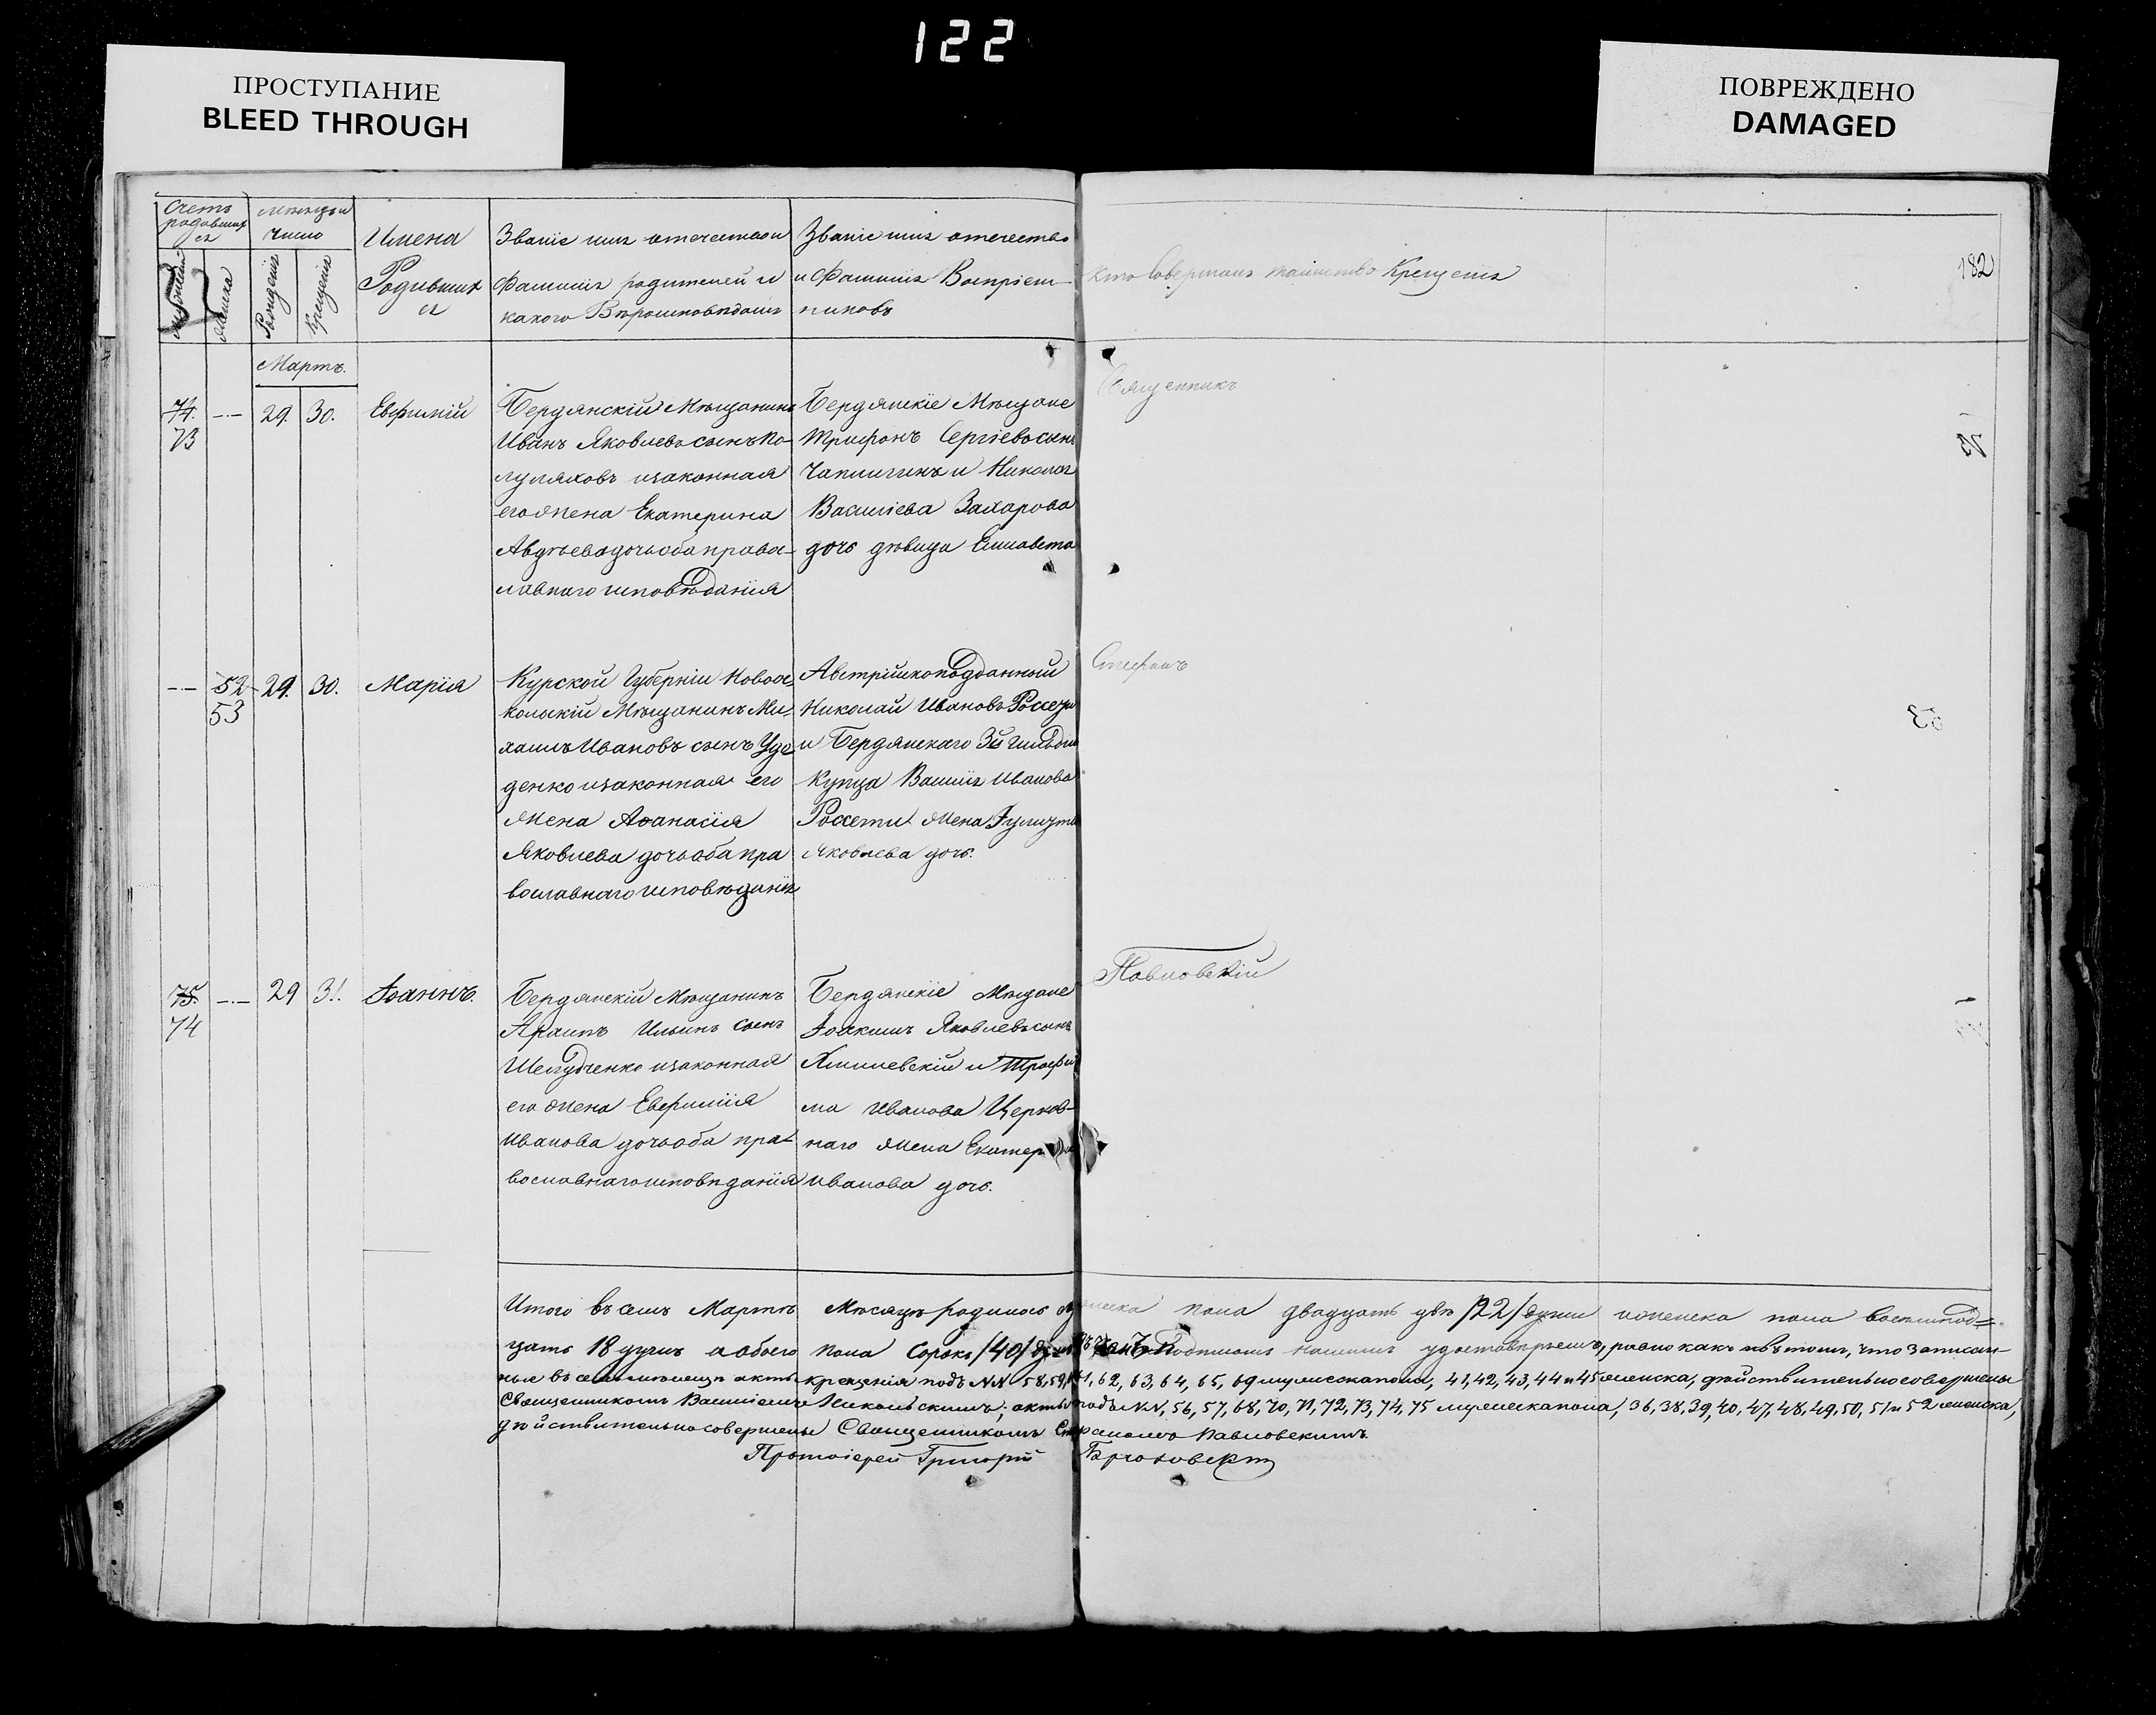 122
ПРОСТУПАНИЕ
BLEED THROUGH
ПОВРЕЖДЕНО
DAMAGED
182
Счетъ родившихся
Мѣсяцъ и число
мужеска
женска
Рожденія
Крещенія
Имена
Родивших
ся
Званіе имя отечество и
фамилія родителей и
какого Вѣроисповѣданія
Званіе имя отечество
и Фамилія Воспріем-
никовъ
Кто Совершалъ таинство Крещенія
Мартъ.
74.
73
29. 30.
Евфимій
Бердянскій Мѣщанинъ
Иванъ Яковлевъ сынъ По-
луляховъ изаконная
его жена Екатерина
Авдѣева дочь оба правос-
лавнаго исповѣданія
Бердянскіе Мѣщане
Трифонъ Сергіевъ сынъ
Чаплигинъ и Николая
Василіева Захарова
дочь дѣвица Елисавета
Священникъ
52
53
29. 30.
Марія
Курской Губерніи Новоос
кольскій Мѣщанинъ Ми-
хаилъ Ивановъ сынъ
денко изаконная его
жена Аѳанасія
Яковлева дочь оба пра
вославнаго исповѣданія
Австрійскоподданный
Николай Ивановъ
и Бердянскаго 3й гильдіи
Купца Василія Иванова
Россети жена
Яковлева дочь.
Стефанъ
53
75.
74
29 31.
Іоаннъ.
Бердянскій Мѣщанинъ
Архипъ Ильинъ сынъ
Шелудченко изаконная
его жена Евфимія
Иванова дочь оба пра-
вославнаго исповѣданія
Бердянскіе Мѣщане
Іоакимъ Яковлевъ сынъ
Хмилевскій и Трофи
ма Иванова Церков-
наго жена Екатерина
Иванова дочь.
Павловскій
Итого въ семъ Мартѣ Мѣсяцѣ родилось мужеска пола двадцать двѣ /22/ души и женска пола восемнад=
цать 18 душъ а обоего пола Сорокъ /40/ душъ Подписомъ нашимъ удостовѣряемъ, равно какъ и въ томъ, что записан-
ные въ семъ мѣсяцѣ акты крещенія подъ №№ 58, 59, 61, 62, 63, 64, 65, 69 мужеска пола, 41, 42, 43, 44 и 45 женска, дѣйствительно совершены
Священникомъ Василіемъ Никольскимъ; акты подъ №№, 56, 57, 68, 70, 71, 72, 73, 74, 75 мужеска пола, 36, 38, 39, 40, 47, 48, 49, 50, 51 и 52 женска,
дѣйствительно совершены Священникомъ Стефаномъ Павловскимъ.
Протоіерей Григорій